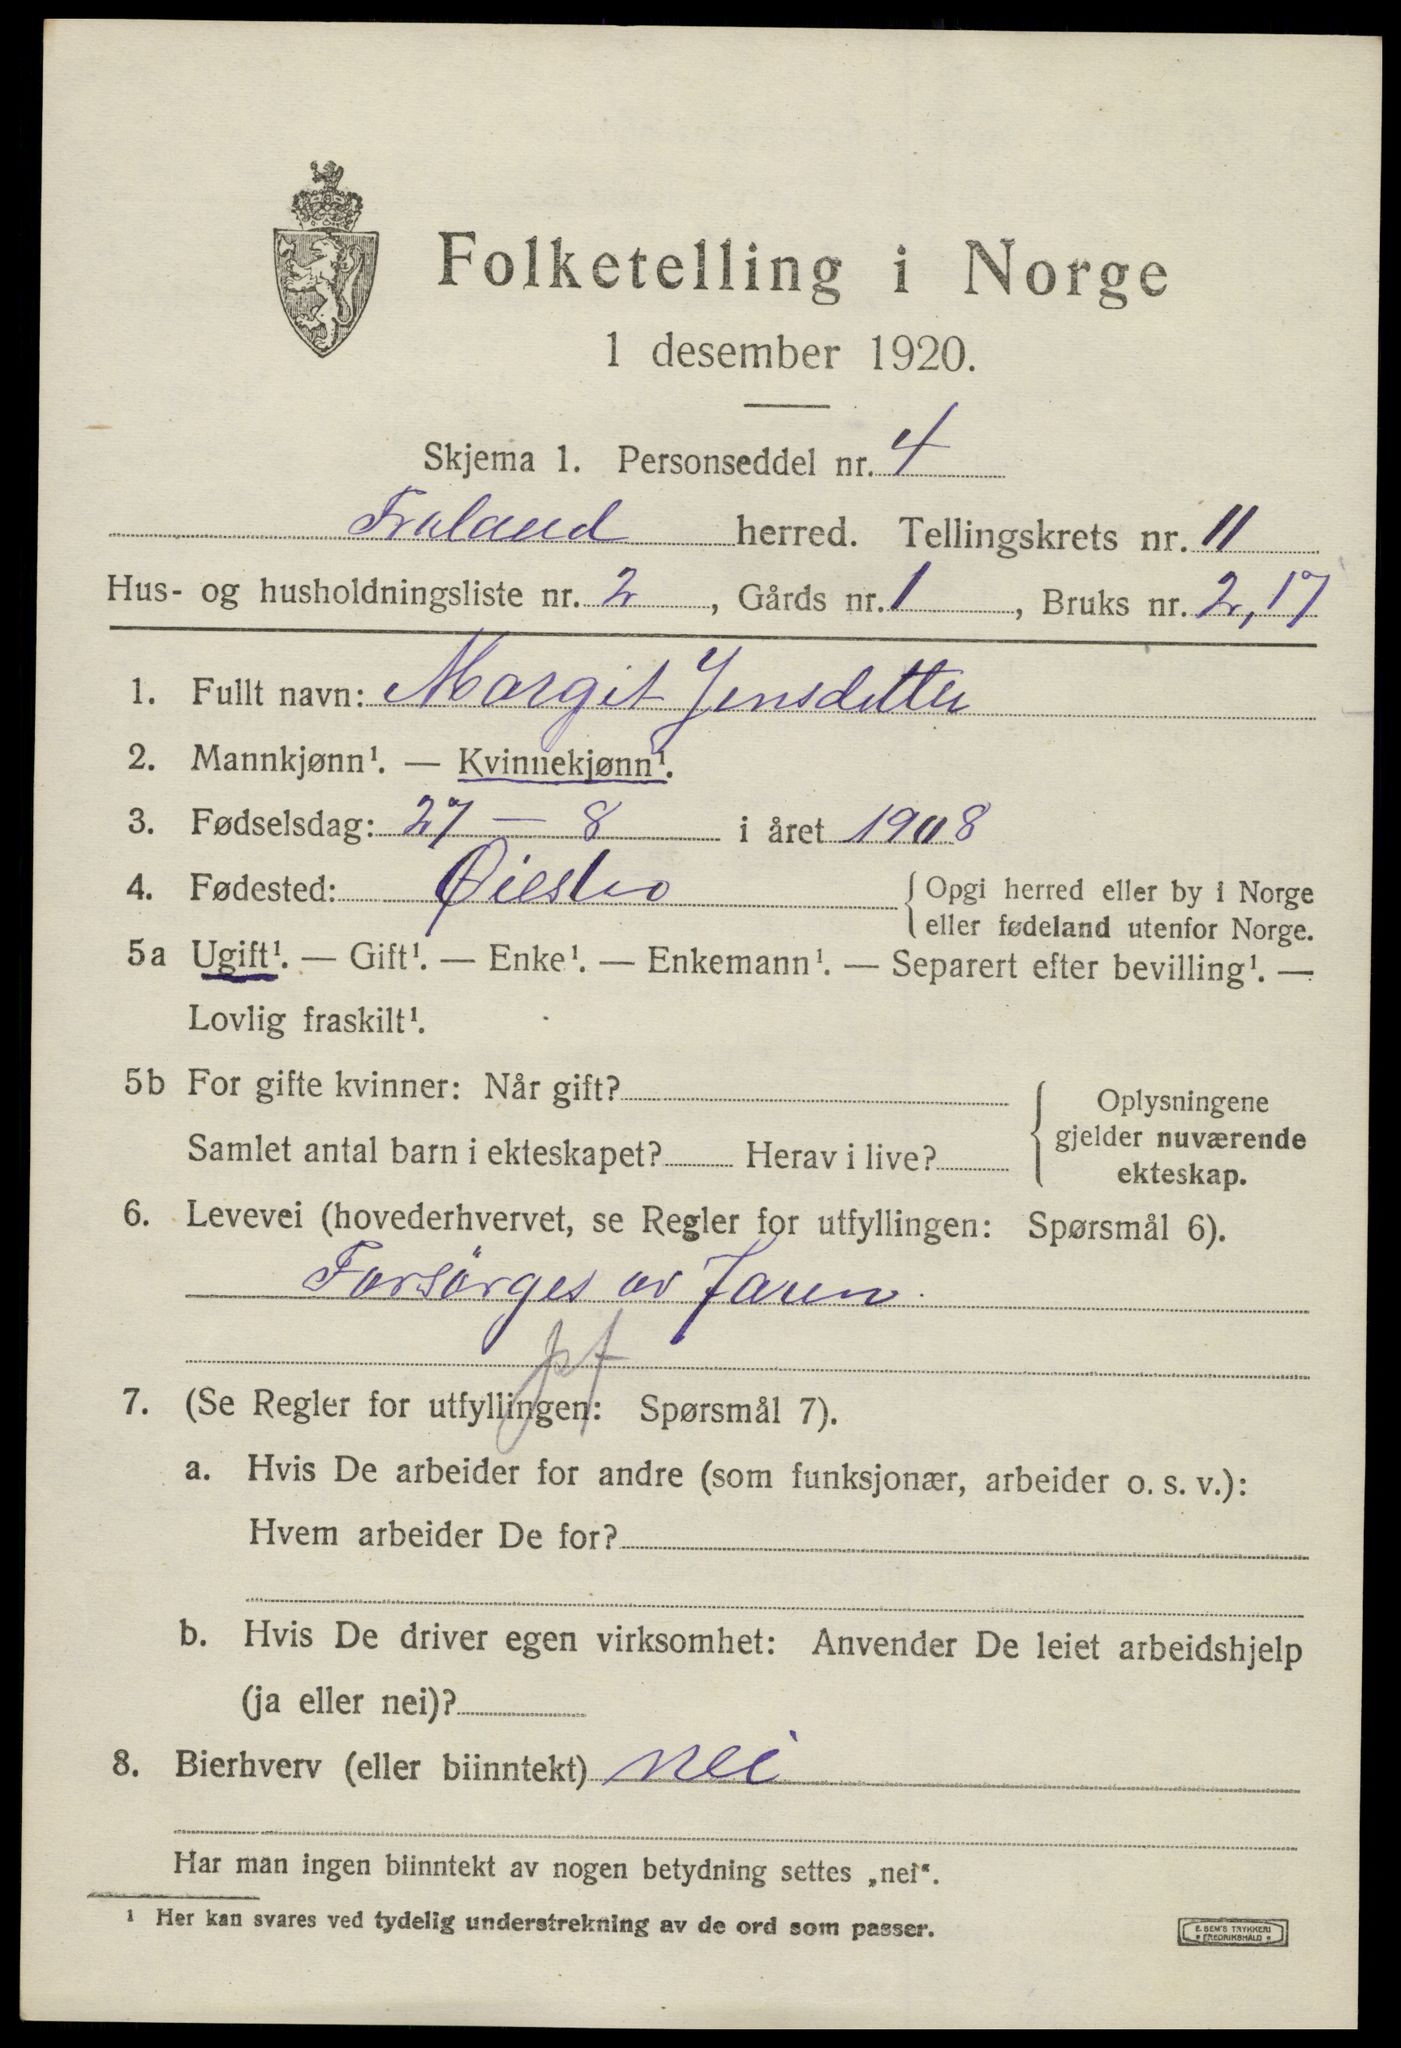 Folketelling i Norge
1 desember 1920.
Skjema 1. Personseddel nr. 4
Froland herred. Tellingskrets nr. 11
Hus- og husholdningsliste nr. 2, Gårds nr. 1, Bruks nr. 2, 17
1. Fullt navn: Margit Jensdatter
2. Mannkjønn¹. — Kvinnekjønn¹.
3. Fødselsdag: 27 – 8 i året 1908
4. Fødested: Øiestad { Opgi herred eller by i Norge
eller fødeland utenfor Norge.
5a Ugift¹. — Gift¹. — Enke¹. — Enkemann¹. — Separert efter bevilling¹. —
Lovlig fraskilt¹.
5b For gifte kvinner: Når gift?
Samlet antal barn i ekteskapet? Herav i live?
Oplysningene
gjelder nuværende
ekteskap.
6. Levevei (hovederhvervet, se Regler for utfyllingen: Spørsmål 6).
Forsörges av Faren.
7. (Se Regler for utfyllingen: Spørsmål 7).
a. Hvis De arbeider for andre (som funksjonær, arbeider o. s. v.):
Hvem arbeider De for?
b. Hvis De driver egen virksomhet: Anvender De leiet arbeidshjelp
(ja eller nei)?
8. Bierhverv (eller biinntekt) nei
Har man ingen biinntekt av nogen betydning settes „nei“.
¹ Her kan svares ved tydelig understrekning av de ord som passer.
E. SEM'S TRYKKERI
FREDRIKSHALD